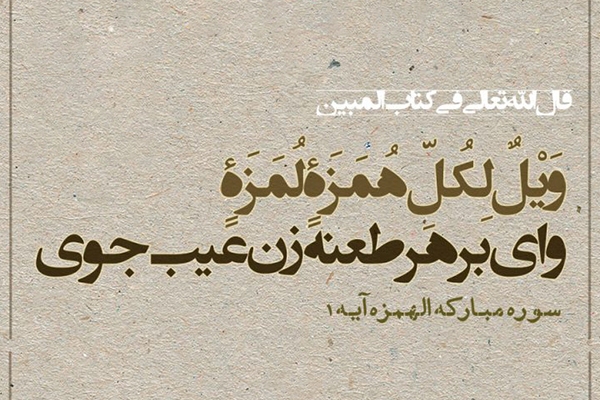 قال الله تعالی فی کتاب المبین
وَيْلٌ لِكُلِّ هُمَزَةٍ لُمَزَةٍ
وای بر هر طعنه زن عیب جوی
سوره مبارکه الهمزه آیه ۱